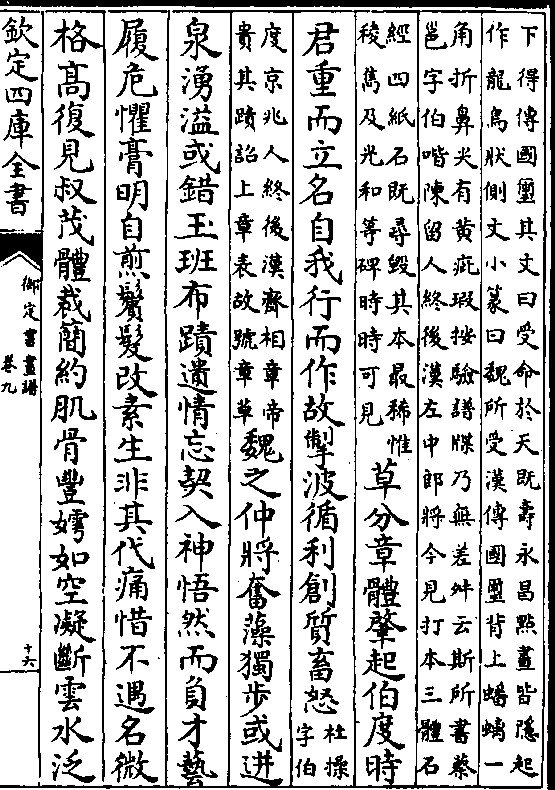 下得傳國璽其文曰受命於天既壽永昌點畫皆隱起
作龍鳥狀側文小篆曰魏所受漢傳國璽背上蟠螭一
角折鼻尖有黃疵瑕按驗譜牒乃無差舛云斯所書蔡
邕字伯喈陳留人終後漢左中郎將今見打本三體石
經四紙石既尋毀其本最稀惟
稜雋及光和等碑時時可見
草分章體肇起伯度時
君重而立名自我行而作故掣波循利創質畜怒
杜操
字伯
度京兆人終後漢齊相章帝
貴其蹟詔上章表故號章草
魏之仲將奮藻獨步或迸
泉湧溢或錯玉班布蹟遺情忘契入神悟然而負才藝
履危懼膏明自煎鬢髮改素生非其代痛惜不遇名微
格高復見叔茂體裁簡約肌骨豐嫮如空凝斷雲水泛
欽定四庫全書
御定書畫譜
卷九
十六